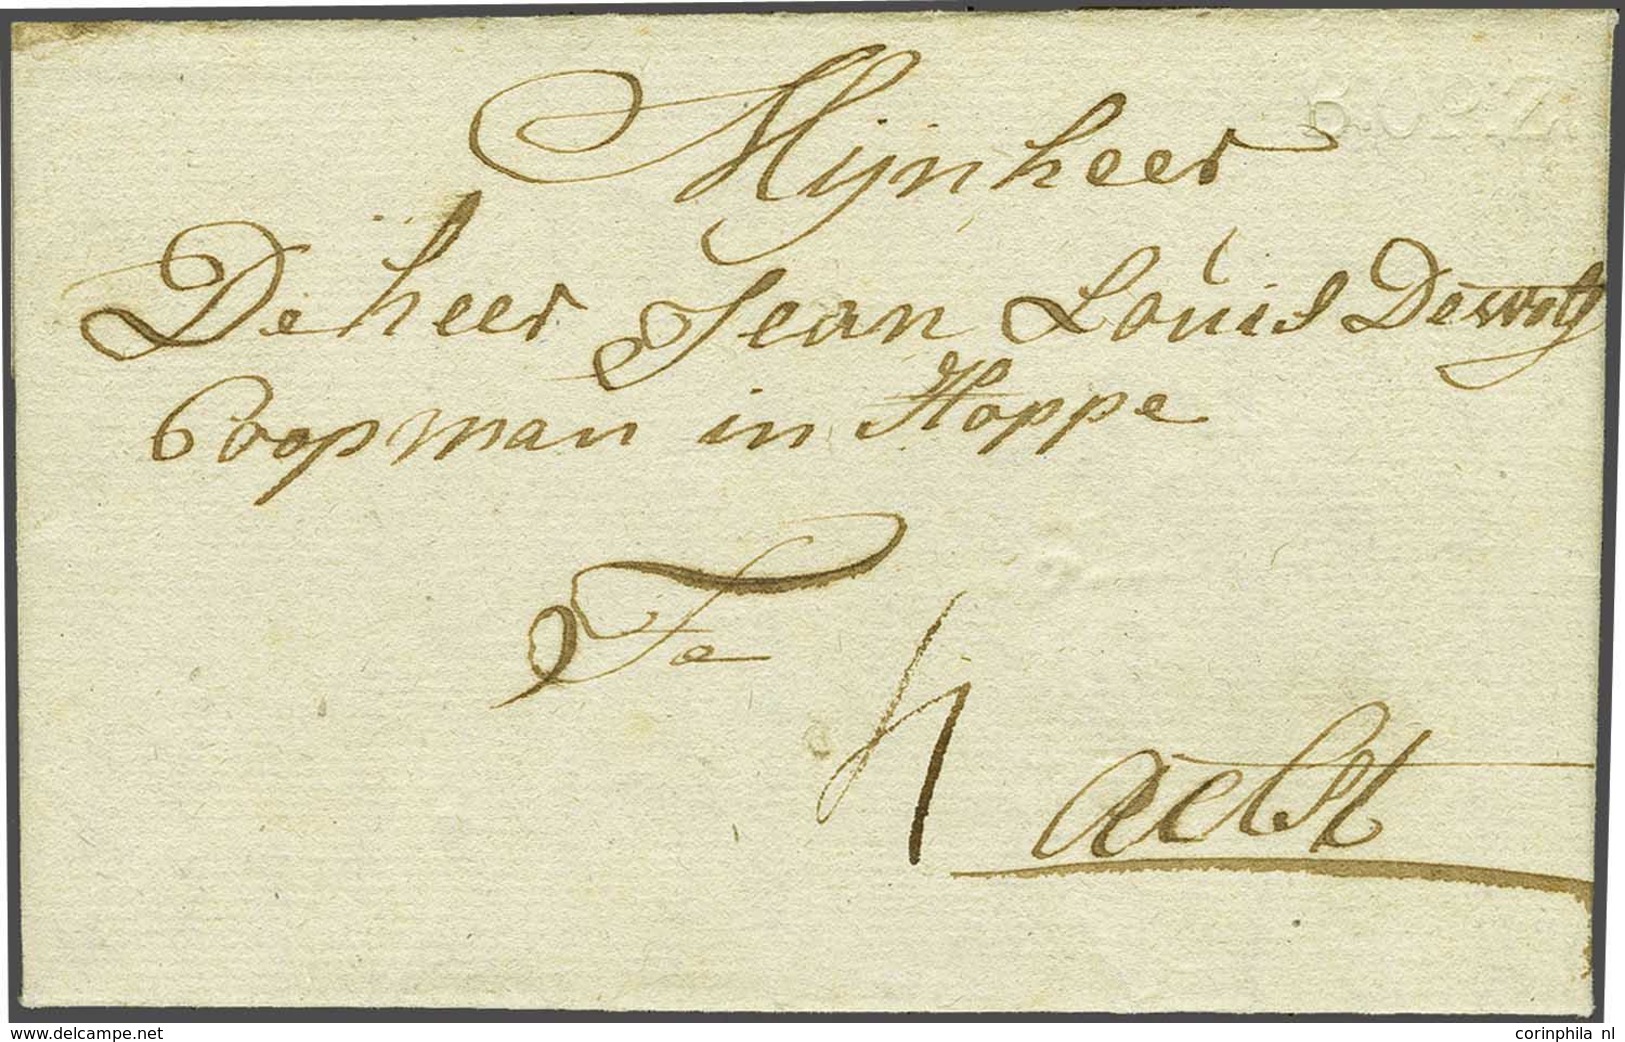 Mijnheer
De heer Jean Louis Dewolf
Coopman in Hoppe
Te
4
Aelst
corinphila nl
www.delcampe.net